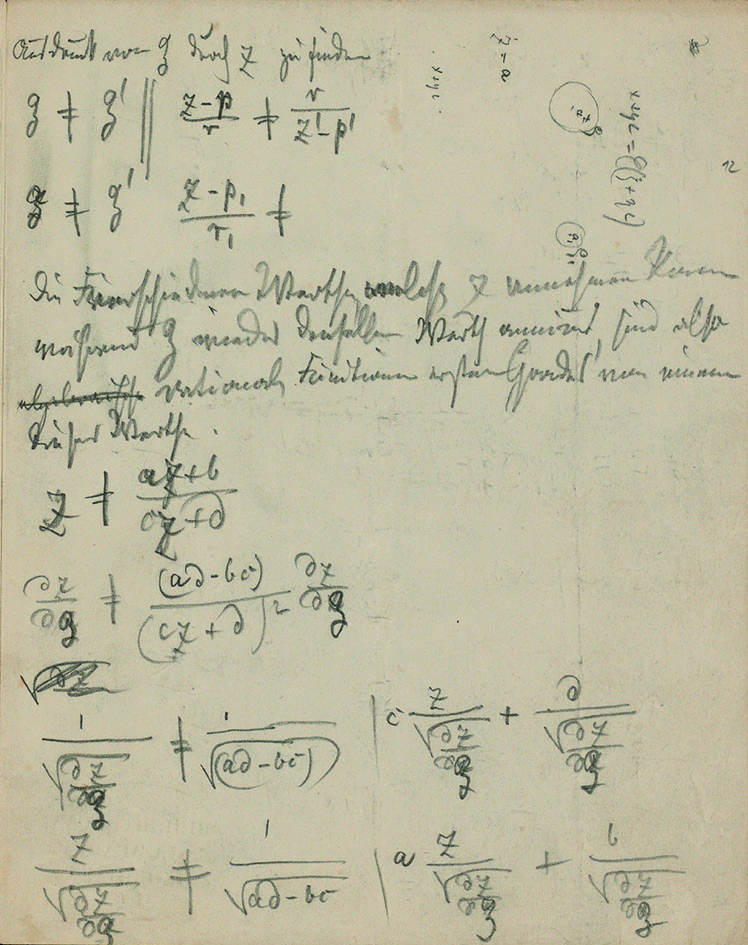 Ausdruck von ʒ durch z zu finden
ʒ ≠ ʒ' || (z−p)/r ≠ r/(z'−p')
ʒ ≠ ʒ' (z−p₁)/r₁ ≠
Die verschiedenen Werthe, welche z annehmen kann
während ʒ wieder denselben Werth annimmt, sind also
algebraische rationale Functionen ersten Grades von einem
dieser Werthe.
z ≠ (az+b)/(cz+∂)
∂z/∂ʒ ≠ (a∂−bc)/(cz+∂)² ∂z/∂ʒ
1/√(∂z/∂ʒ) ≠ 1/√(a∂−bc) | c z/√(∂z/∂ʒ) + ∂/√(∂z/∂ʒ)
z/√(∂z/∂ʒ) ≠ 1/√(a∂−bc) | a z/√(∂z/∂ʒ) + b/√(∂z/∂ʒ)
z−a
x+yi
12